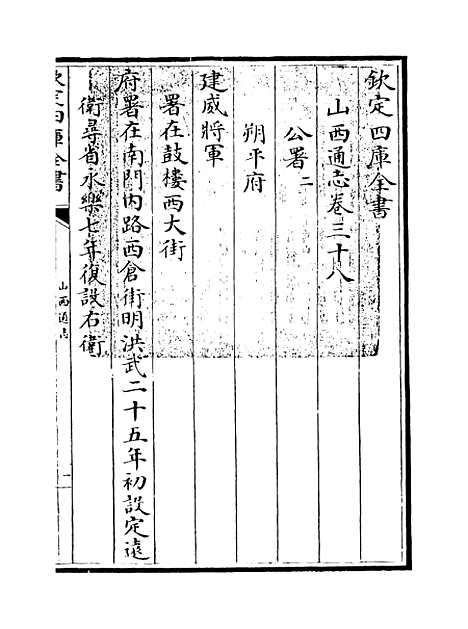 欽定四庫全書
山西通志卷三十八
公署二
朔平府
建威將軍
署在鼓樓西大街
府署在南門内路西倉街明洪武二十五年初設定遠
衛尋省永樂七年復設右衛
欽定四庫全書
山西通志
一